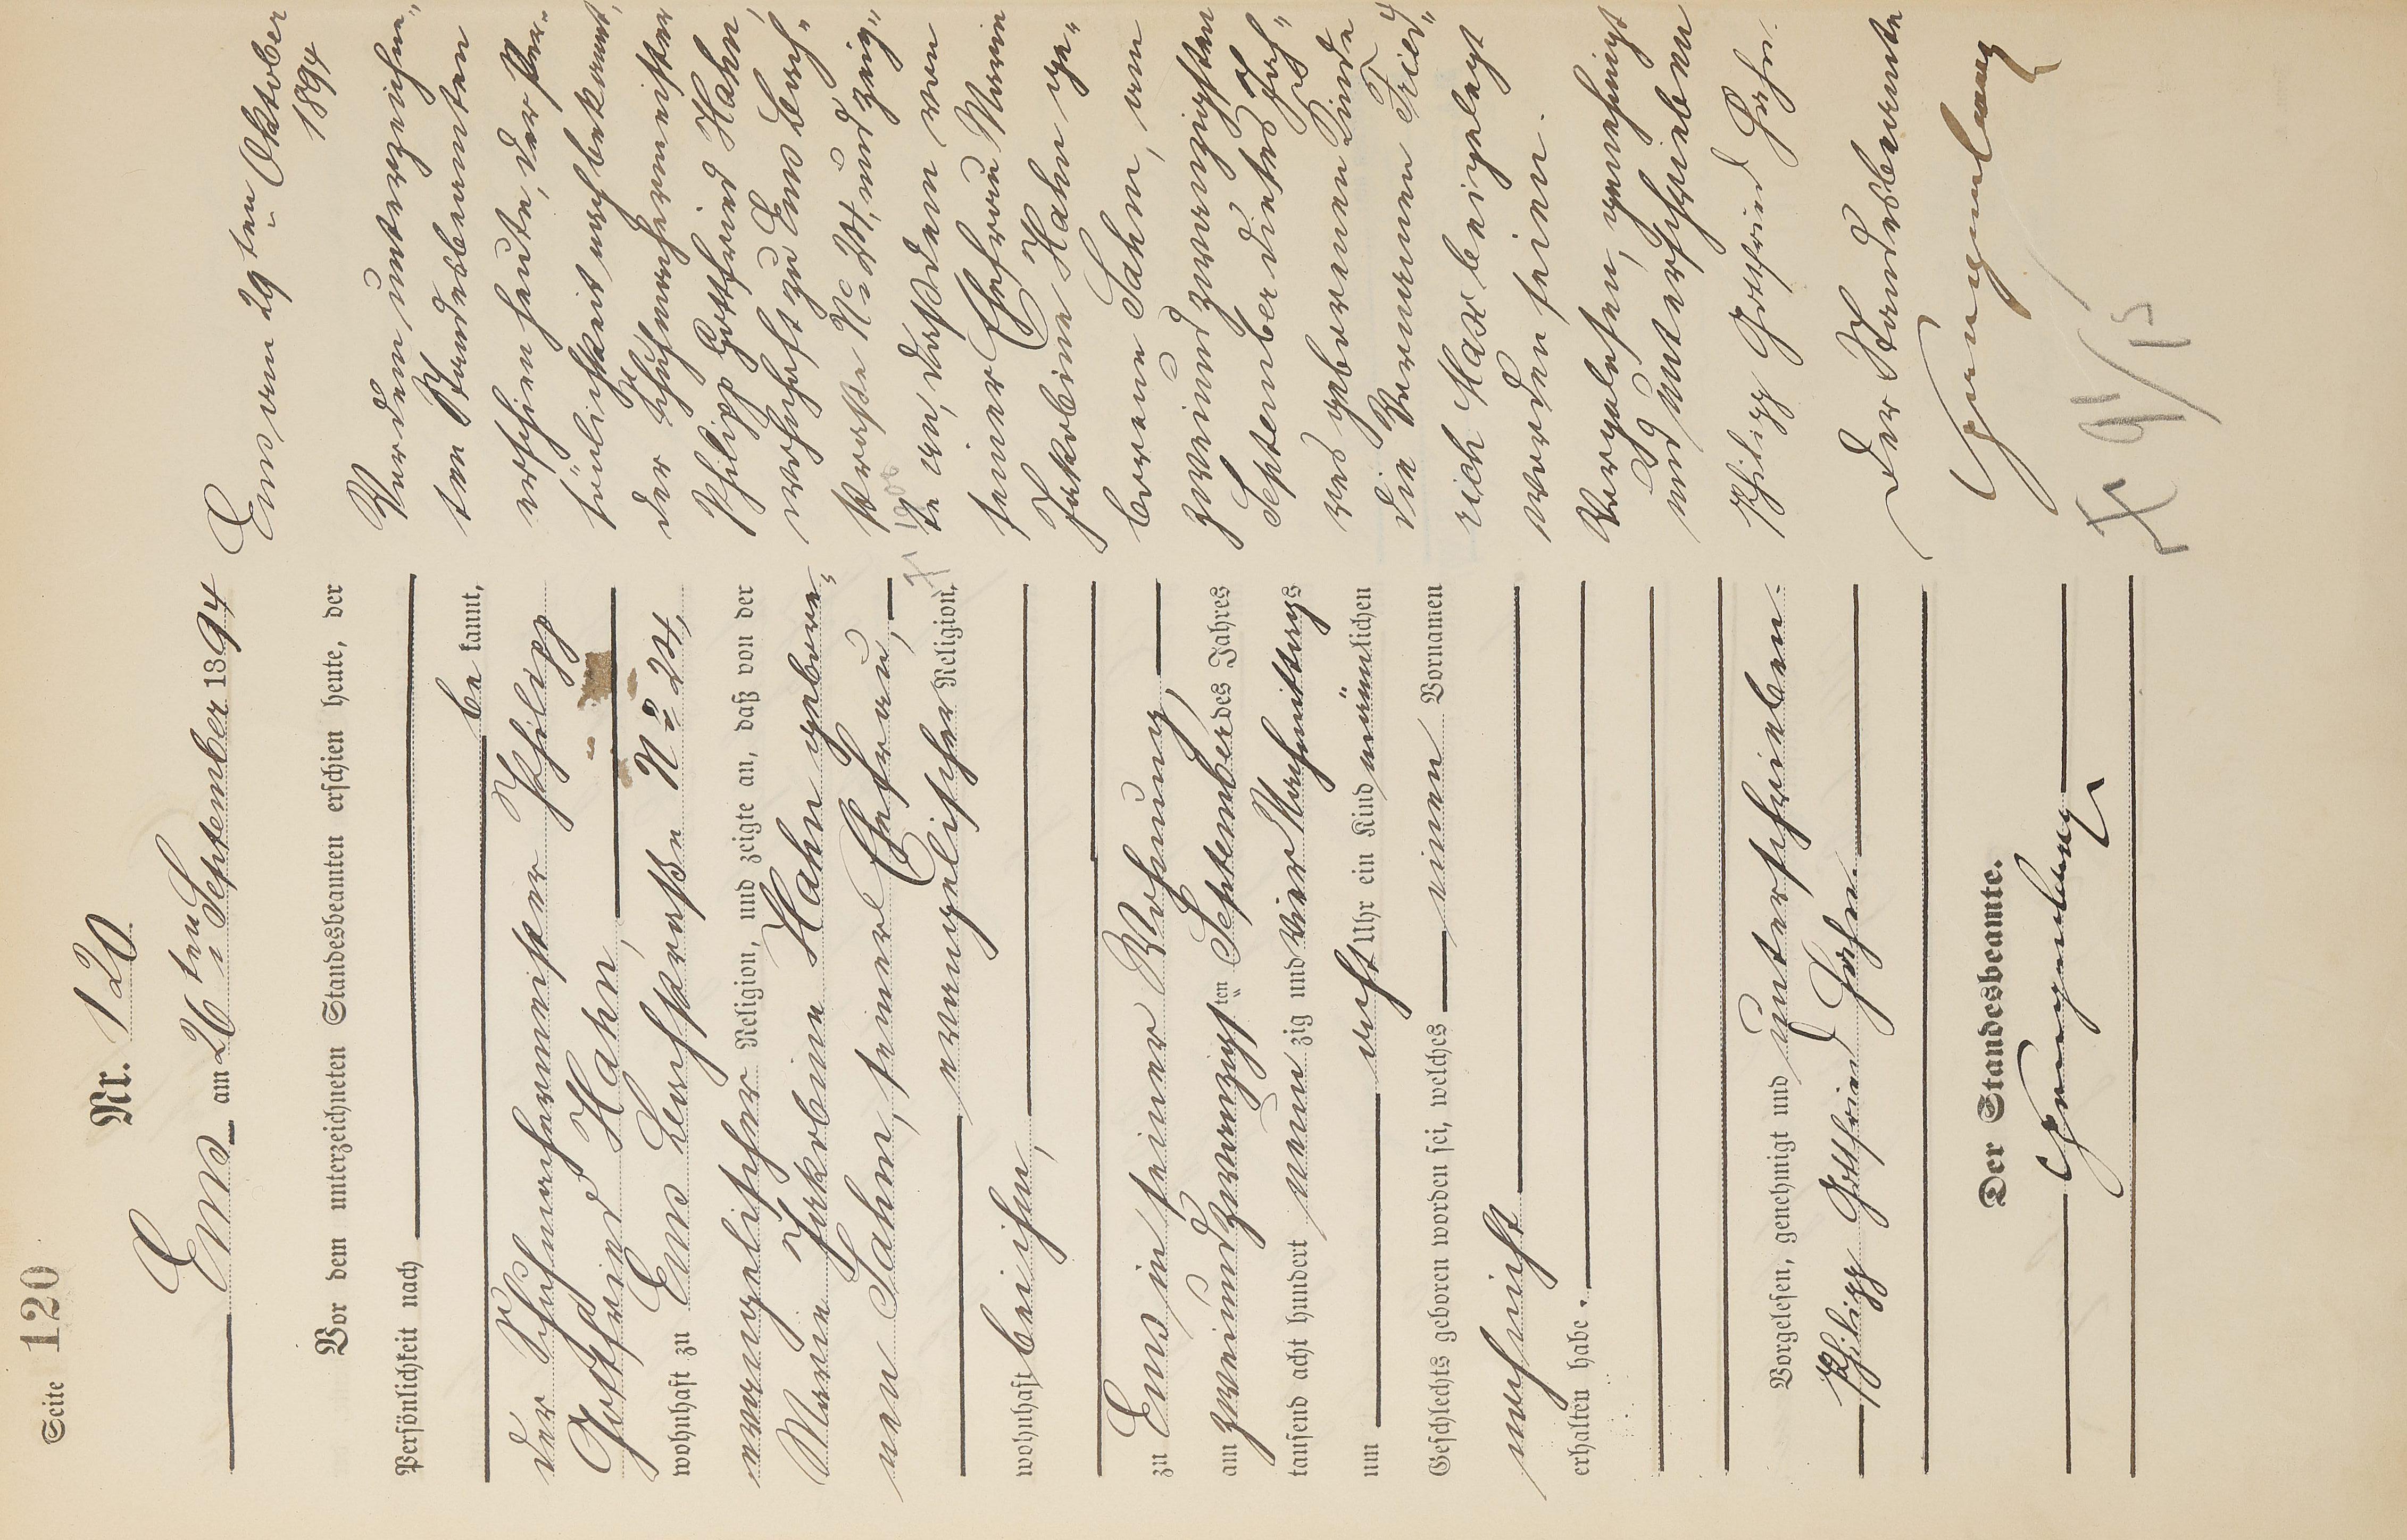 Seite 120
Nr. 120
Ems am 26ten September 1894
Vor dem unterzeichneten Standesbeamten erschien heute, der
Persönlichkeit nach
be kannt,
der Schuhmachermeister Philipp
Gottfried Hahn,
wohnhaft zu Ems Bachstraße No 24,
evangelischer Religion, und zeigte an, daß von der
Marie Jakobine Hahn gebore-
nen Sahm, seiner Ehefrau,
evangelischer Religion,
wohnhaft bei ihm,
zu Ems in seiner Wohnung,
am zweiundzwanzigsten September des Jahres
tausend acht hundert neun zig und vier Nachmittags
um acht Uhr ein Kind männlichen
Geschlechts geboren worden sei, welches einen Vornamen
noch nicht
erhalten habe.
Vorgelesen, genehmigt und unterschrieben
Philipp Gottfried Hahn.
Der Standesbeamte.
Ems am 29ten Oktober
1894
Vor dem unterzeichne-
ten Standesbeamten
erschien heute, der Per-
sönlichkeit nach bekannt,
der Schuhmachermeister
Philipp Gottfried Hahn,
wohnhaft zu Ems Bach-
straße No 24, und zeig-
te an, daß dem von
seiner Ehefrau Marie
Jakobine Hahn ge-
borene Sahm, am
zweiundzwanzigsten
September dieses Jah-
res geborenen Kinde
die Vornamen Fried-
rich Max beigelegt
worden seien.
Vorgelesen, genehmigt
und unterschrieben
Philipp Gottfried Hahn.
Der Standesbeamte